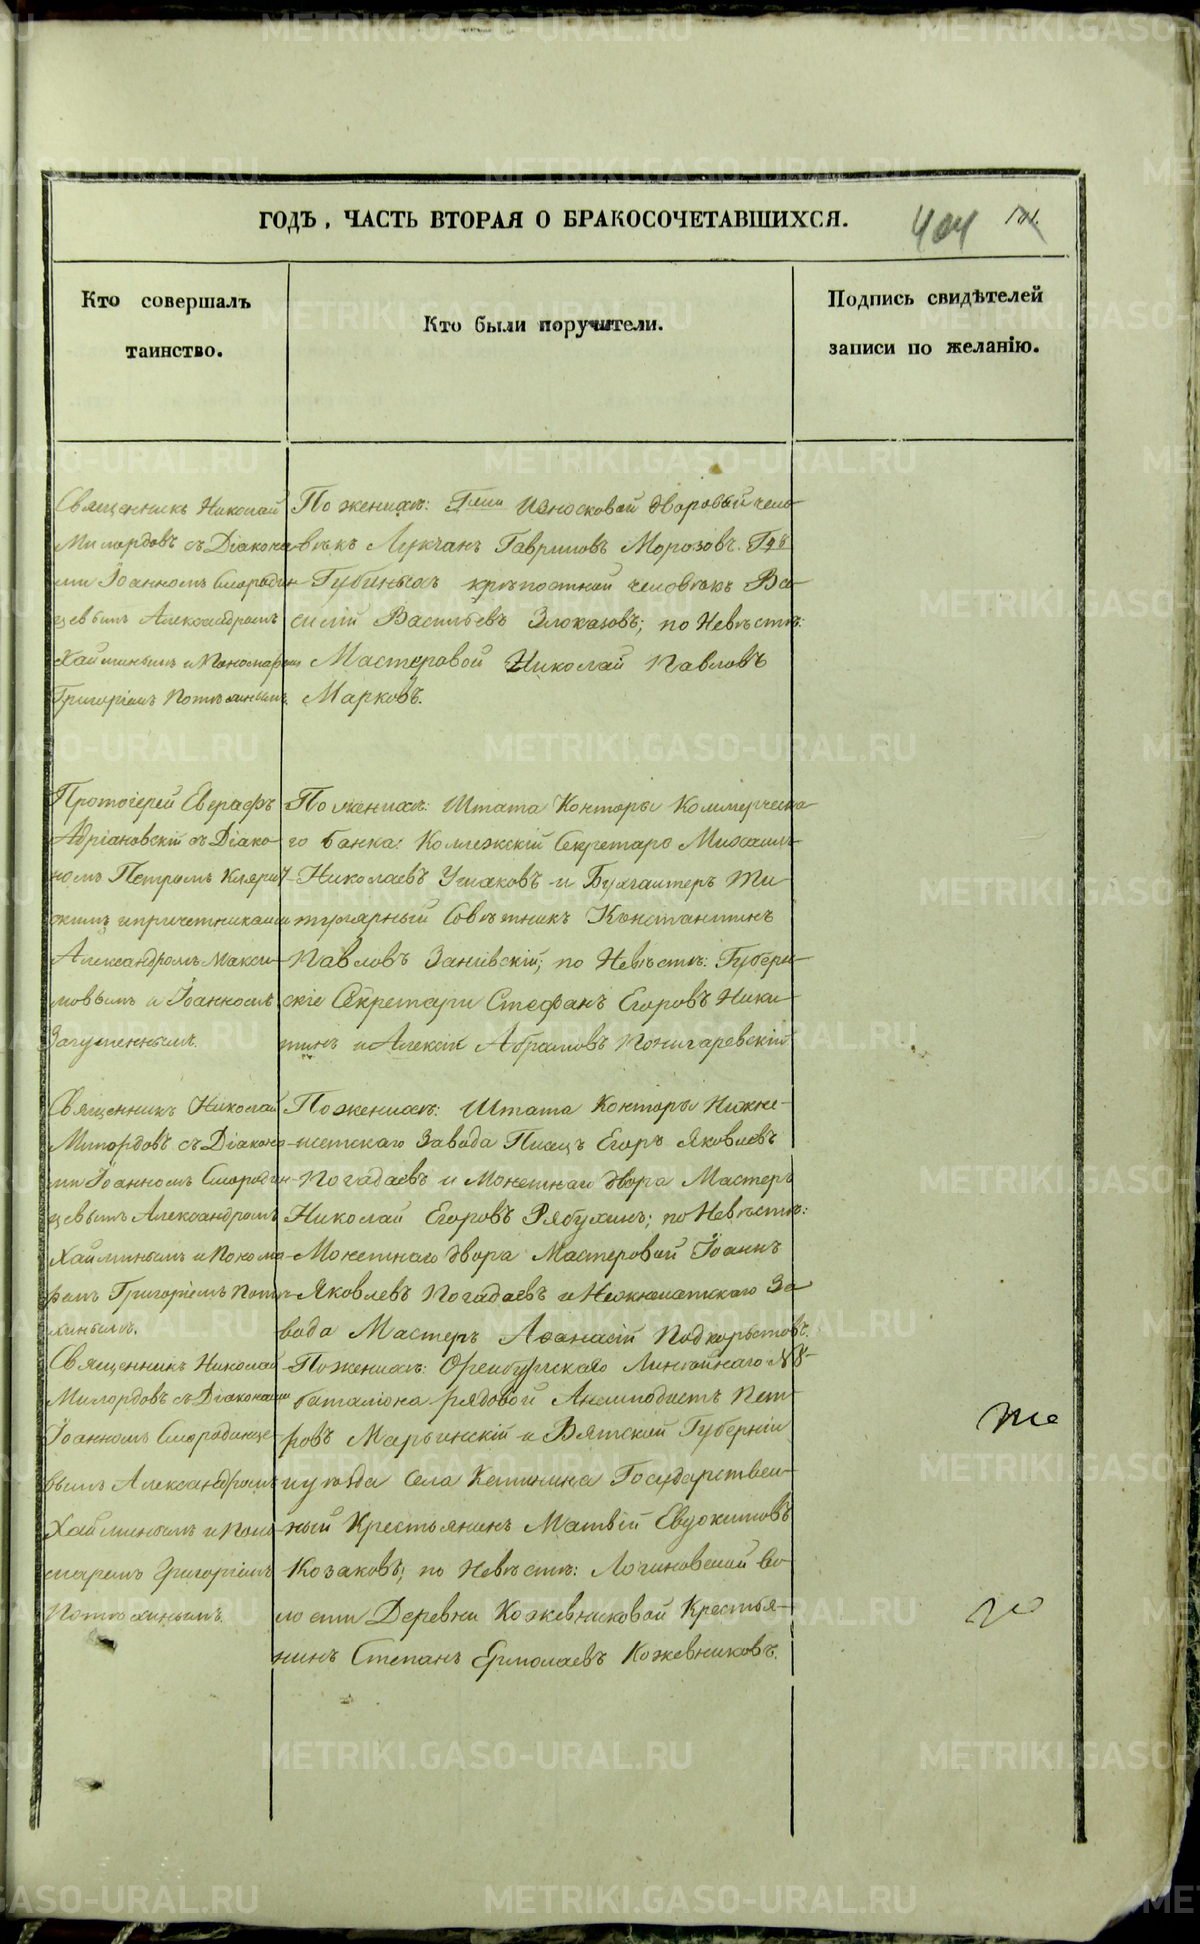 ГОДЪ, ЧАСТЬ ВТОРАЯ О БРАКОСОЧЕТАВШИХСЯ.
404
Кто совершалъ
таинство.
Кто были поручители.
Подпись свидѣтелей
записи по желанію.
Священникъ Николай
Милордовъ съ Діакона
ми Іоанномъ Смородин
цевымъ Александромъ
Хайминымъ и Пономаремъ
Григоріемъ Потѣхинымъ.
По женихѣ: Гжи Износковой дворовый чело
вѣкъ Лукіанъ Гавриловъ Морозовъ. Гдъ
Губиныхъ крѣпостной человѣкъ Ва-
силій Васильевъ Злоказовъ; по Невѣстѣ:
Мастеровой Николай Павловъ
Марковъ.
Протоіерей Евграфъ
Адріановскій съ Діако-
номъ Петромъ
скимъ и причетниками
Александромъ Макси-
мовымъ и Іоанномъ
По женихѣ: Штата Конторы Коммерческа-
го банка: Коллежскій Секретарь Михаилъ
Николаевъ Ушаковъ и Бухгалтеръ Ти-
тулярный Совѣтникъ Константинъ
Павловъ по Невѣстѣ: Губерн-
скіе Секретари Стефанъ Егоровъ Ники-
тинъ и Алексій Абрамовъ
Священникъ Николай
Милордовъ съ Діакона
ми Іоанномъ Смородин-
цевымъ Александромъ
Хайминымъ и Понома-
ремъ Григоріемъ Потѣ-
хинымъ.
По женихѣ: Штата Конторы Нижне-
исетскаго Завода Писецъ Егоръ Яковлевъ
Погадаевъ и Монетнаго двора Мастеръ
Николай Егоровъ Рябухинъ; по Невѣстѣ:
Монетнаго двора Мастеровой Іоаннъ
Яковлевъ Погадаевъ и Нижнеисетскаго За
вода Мастеръ Аѳанасій Подкорытовъ.
Священникъ Николай
Милордовъ съ Діаконами
Іоанномъ Смородинце-
вымъ Александромъ
Хайминымъ и Поно
маремъ Григоріемъ
Потѣхинымъ.
По женихѣ: Оренбургскаго Линѣйнаго №8
баталіона рядовой Анемподистъ Пет-
ровъ Марьинскій и Вятской Губерніи
уѣзда Села Государствен-
ный Крестьянинъ Матвій Евдокимовъ
Козаковъ; по Невѣстѣ: Логиновской Во-
лости Деревни Кожевниковой Крестья-
нинъ Степанъ Ермолаевъ Кожевниковъ.